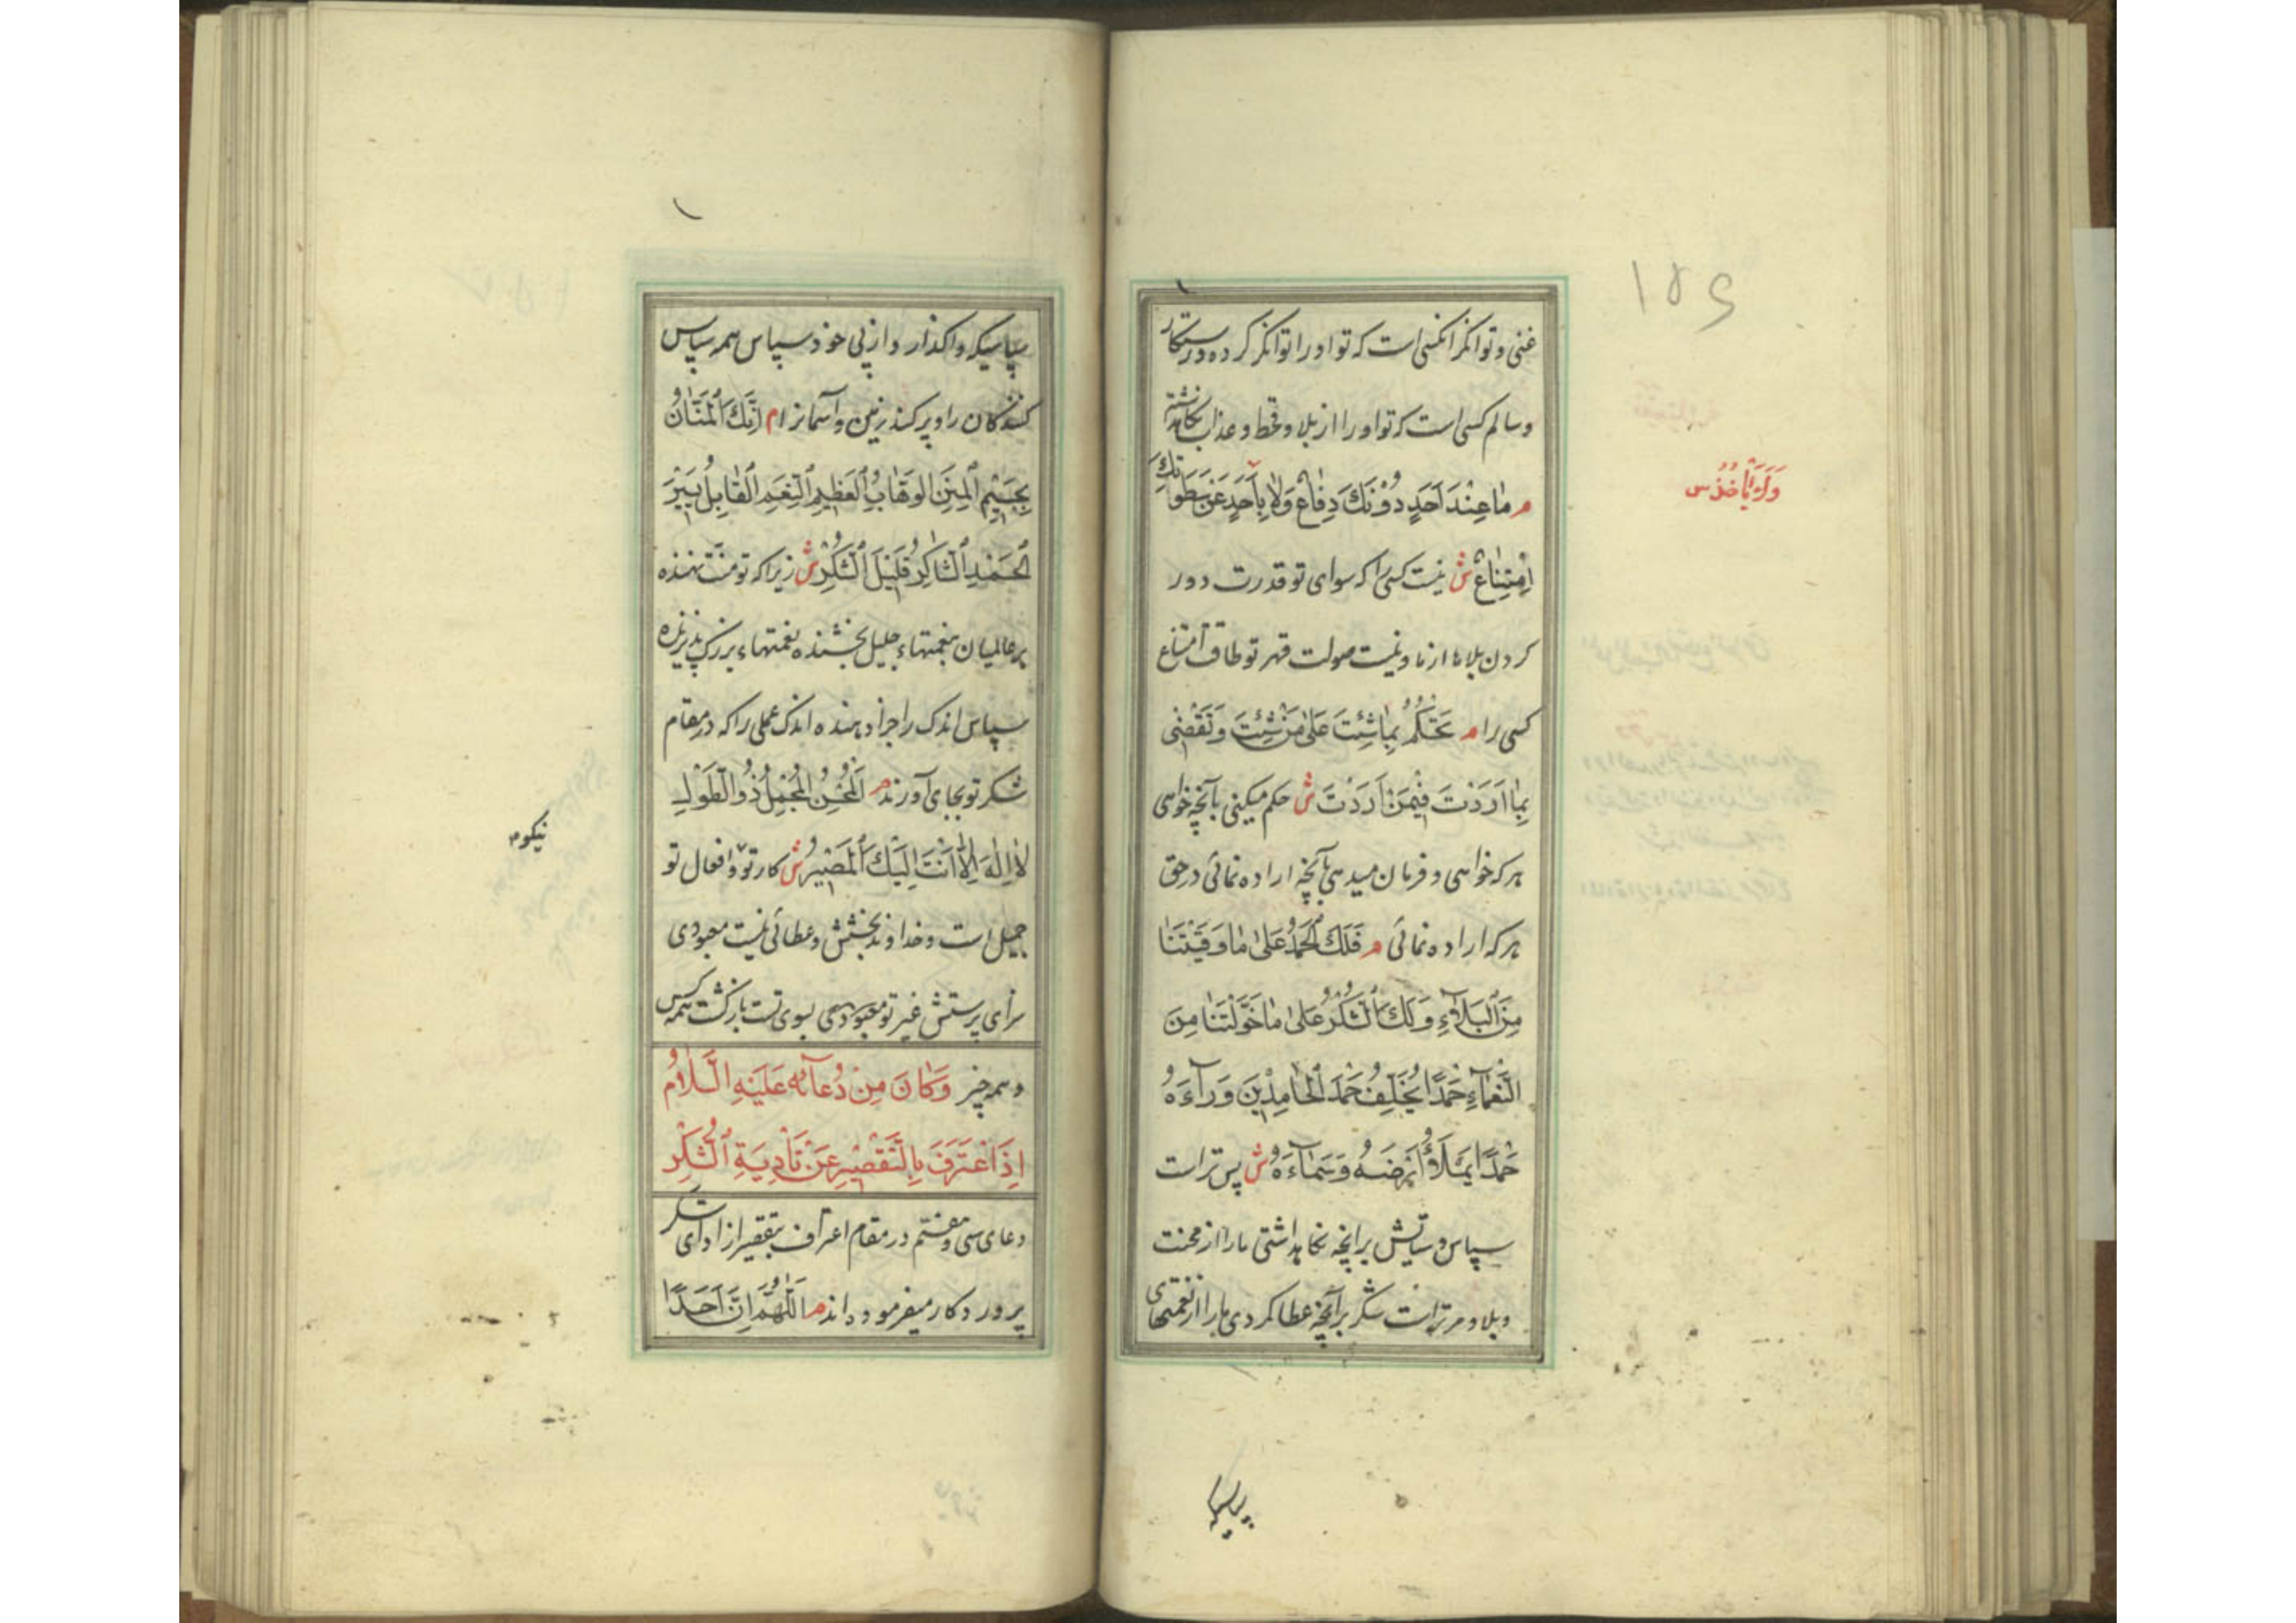 ۱۵۶
غنی و توانگر انکسی است که تو او را توانگر کرده و رستکار
و سالم کسی است که تو او را از بلا و قحط و عذاب نکاهداشته
م مٰا عِنْدَ اَحَدٍ دُوْنَكَ دِفٰاعٌ وَلٰا بِاَحَدٍ عَنْ سَطْوَتِكَ
اِمْتِنٰاعٌ ش نیست کسی را که سوای تو قدرت دور
کردن بلاها از ما و نیست صولت قهر تو طاقت امتناع
کسی را م تَحْكُمُ بِمٰا شِئْتَ عَلىٰ مَنْ شِئْتَ وَ تَقْضٖى
بِمٰا اَرَدْتَ فٖيْمَنْ اَرَدْتَ ش حکم میکنی بآنچه خواهی
هر که خواهی و فرمان میدهی بآنچه اراده نمائی در حق
هر که اراده نمائی م فَلَكَ الْحَمْدُ عَلىٰ مٰا وَقَيْتَنٰا
مِنَ ٱلْبَلَآءِ وَ لَكَ ٱلشُّكْرُ عَلىٰ مٰا خَوَّلْتَنٰا مِنَ
النَّعْمٰآءِ حَمْدًا يُخَلِّفُ حَمْدَ ٱلْحٰامِدٖيْنَ وَرَآءَهُ
حَمْدًا يَمْلَأُ اَرْضَهُ وَ سَمٰآءَهُ ش پس تراست
سپاس و ستایش بر انچه نکاهداشتی ما را از محنت
و بلا و مر تراست شکر بر آنچه عطا کردی ما را از نعمتهای
سپاسیکه
سپاسیکه واکذارد از پی خود سپاس همه سپاس
کنندکان را و پر کند زمین و آسمانرا م اِنَّكَ ٱلْمَنّٰانُ
بِجَسٖيْمِ ٱلْمِنَنِ الْوَهّٰابُ لِعَظٖيْمِ ٱلنِّعَمِ ٱلْقٰابِلُ يَسٖيْرَ
ٱلْحَمْدِ ٱلشّٰاكِرُ قَلٖيْلَ ٱلشُّكْرِ ش زیرا که تو منت نهنده
بر عالمیان بنعمتهاء جلیل بخشنده نعمتهاء بزرک پذیرنده
سپاس اندک را جزا دهنده اندک عملی را که در مقام
شکر تو بجای آورند م اَلْمُحْسِنُ الْمُجْمِلُ ذُو الطَّوْلِ
لٰا اِلٰهَ اِلّٰا اَنْتَ اِلَيْكَ ٱلْمَصٖيْرُ ش کار تو و افعال تو
نیکو
جمیل است و خداوند بخشش و عطائی نیست معبودی
سزای پرستش غیر تو معبودی بسوی تست بازکشت همه کس
و همه چیز وَ كٰانَ مِنْ دُعٰآئِهٖ عَلَيْهِ السَّلٰامُ
اِذَا اعْتَرَفَ بِالتَّقْصٖيْرِ عَنْ تَأْدِيَةِ ٱلشُّكْرِ
دعای سی و هفتم در مقام اعتراف بتقصیر از ادای شکر
پروردکار میفرموده‌اند م اَللّٰهُمَّ اِنَّ اَحَدًا